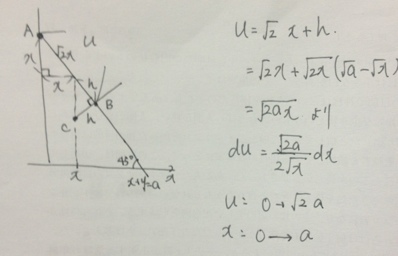 A
u
x
√2x
x
h
B
C
h
45°
x
x+y=a
x
u=√2 x+h.
=√2x+√2x(√a-√x)
=√2ax より
du=√2a/2√x dx
u: 0→√2a
x: 0→a